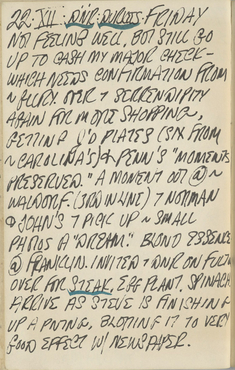 22. XII: OUR DUROS: FRIDAY
NOT FEELING WELL, BUT STILL GO
UP TO CASH MY MAJOR CHECK—
WHICH NEEDS CONFIRMATION FROM
~ FLURY. OVER + SERENDIPITY
AGAIN FOR MORE SHOPPING,
GETTING U'D PLATES (SIX FROM
~ CAROLINA'S) & PENN'S "MOMENTS
PRESERVED." A MOMENT OUT @ ~
WALDORF. (3RD IN LINE) + NORMAN
JOHN'S + PICK UP ~ SMALL
PHOTOS A "DREAM." BLOND ESSENCE
@ FRANKLIN. INVITED + DNR ON
OVER FOR STEAK, EGG PLANT, SPINACH
ARRIVE AS STEVE IS FINISHING
UP A PNTING, BLOTTING IT TO VERY
GOOD EFFECT W/ NEWSPAPER.